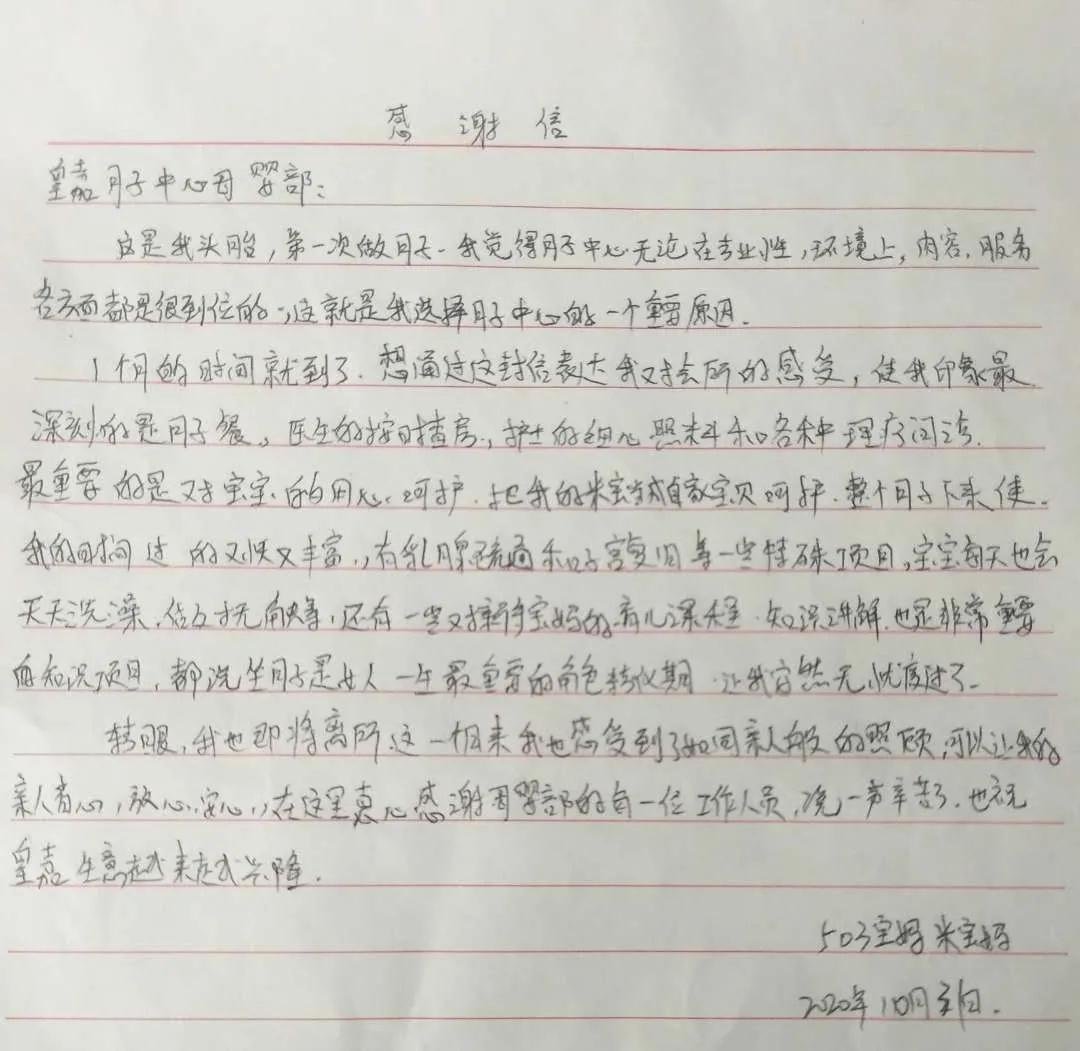 感谢信
皇嘉月子中心母婴部：
这是我头胎，第一次做月子.我觉得月子中心无论在专业性，环境上，内容.服务
各方面都是很到位的.，这就是我选择月子中心的一个重要原因.
1个月的时间就到了.想通过这封信表达我对会所的感受，使我印象最
深刻的是月子餐.，医生的按时查房.，护士的细心照料和各种理疗问诊.
最重要的是对宝宝的用心.呵护.把我的米宝当成自家宝贝呵护.整个月子下来使.
我的时间过的又快又丰富.，有乳腺疏通和子宫复旧等一些特殊项目，宝宝每天也会
天天洗澡.信抚触等，还有一些对新手宝妈的育儿课程.知识讲解.也是非常重要
的知识项目，都说坐月子是女人一生最重要的角色转化期.让我安然无忧度过了.
转眼，我也即将离所.这一个月来我也感受到了如同亲人般的照顾，可以让我的
亲人省心，放心.安心.，在这里衷心感谢母婴部的每一位工作人员.说一声辛苦了.也祝
皇嘉生意越来越兴隆.
503宝妈米宝妈
2020年10月